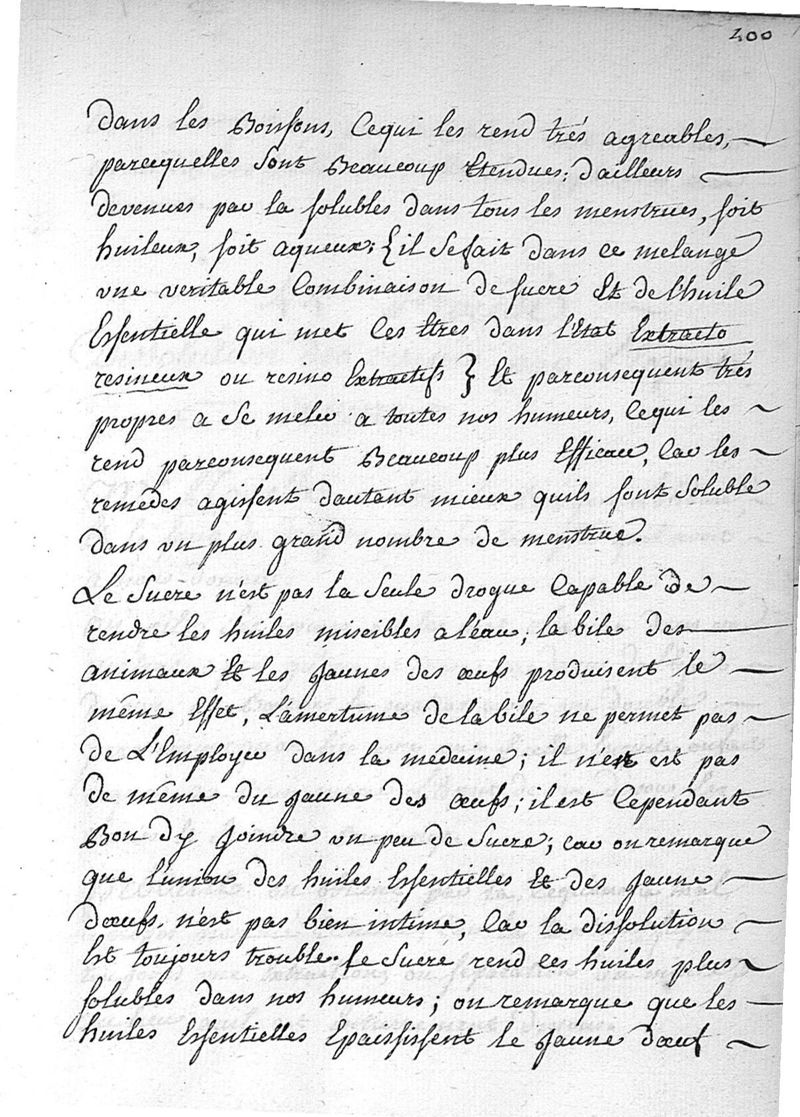 400
dans les Boissons, Cequi les rend trés agreables,
parcequelles sont Beaucoup Etendues; d'ailleurs
devenues par la solubles dans tous les menstrues, soit
huileux, soit aqueux; {il se fait dans ce melange
une veritable Combinaison de sucre Et de l'huile
Essentielle qui met Ces Etres dans l'Etat Extracto
resineux ou resino Extractifs } Et parconsequent trés
propres a se meler a toutes nos humeurs, Cequi les
rend parconsequent Beaucoup plus Efficace, Car les
remedes agissent dautant mieux quils sont soluble
dans un plus grand nombre de menstrue.
Le Sucre n'est pas la Seule drogue Capable de
rendre les huiles miscibles a léau; la bile des
animaux Et les Jaunes des œufs produisent le
même Effet, L'amertume de la bile ne permet pas
de L'Employer dans la medecine; il n'est est pas
de même du Jaune des œufs; il est Cependant
Bon dy Joindre un peu de Sucre; car on remarque
que l'union des huiles Essentielles Et des Jaune
dœufs. n'est pas bien intime, Car la dissolution
Est toujours trouble. le Sucre rend ces huiles plus
solubles dans nos humeurs; on remarque que les
huiles Essentielles Epaississent le Jaune dœuf